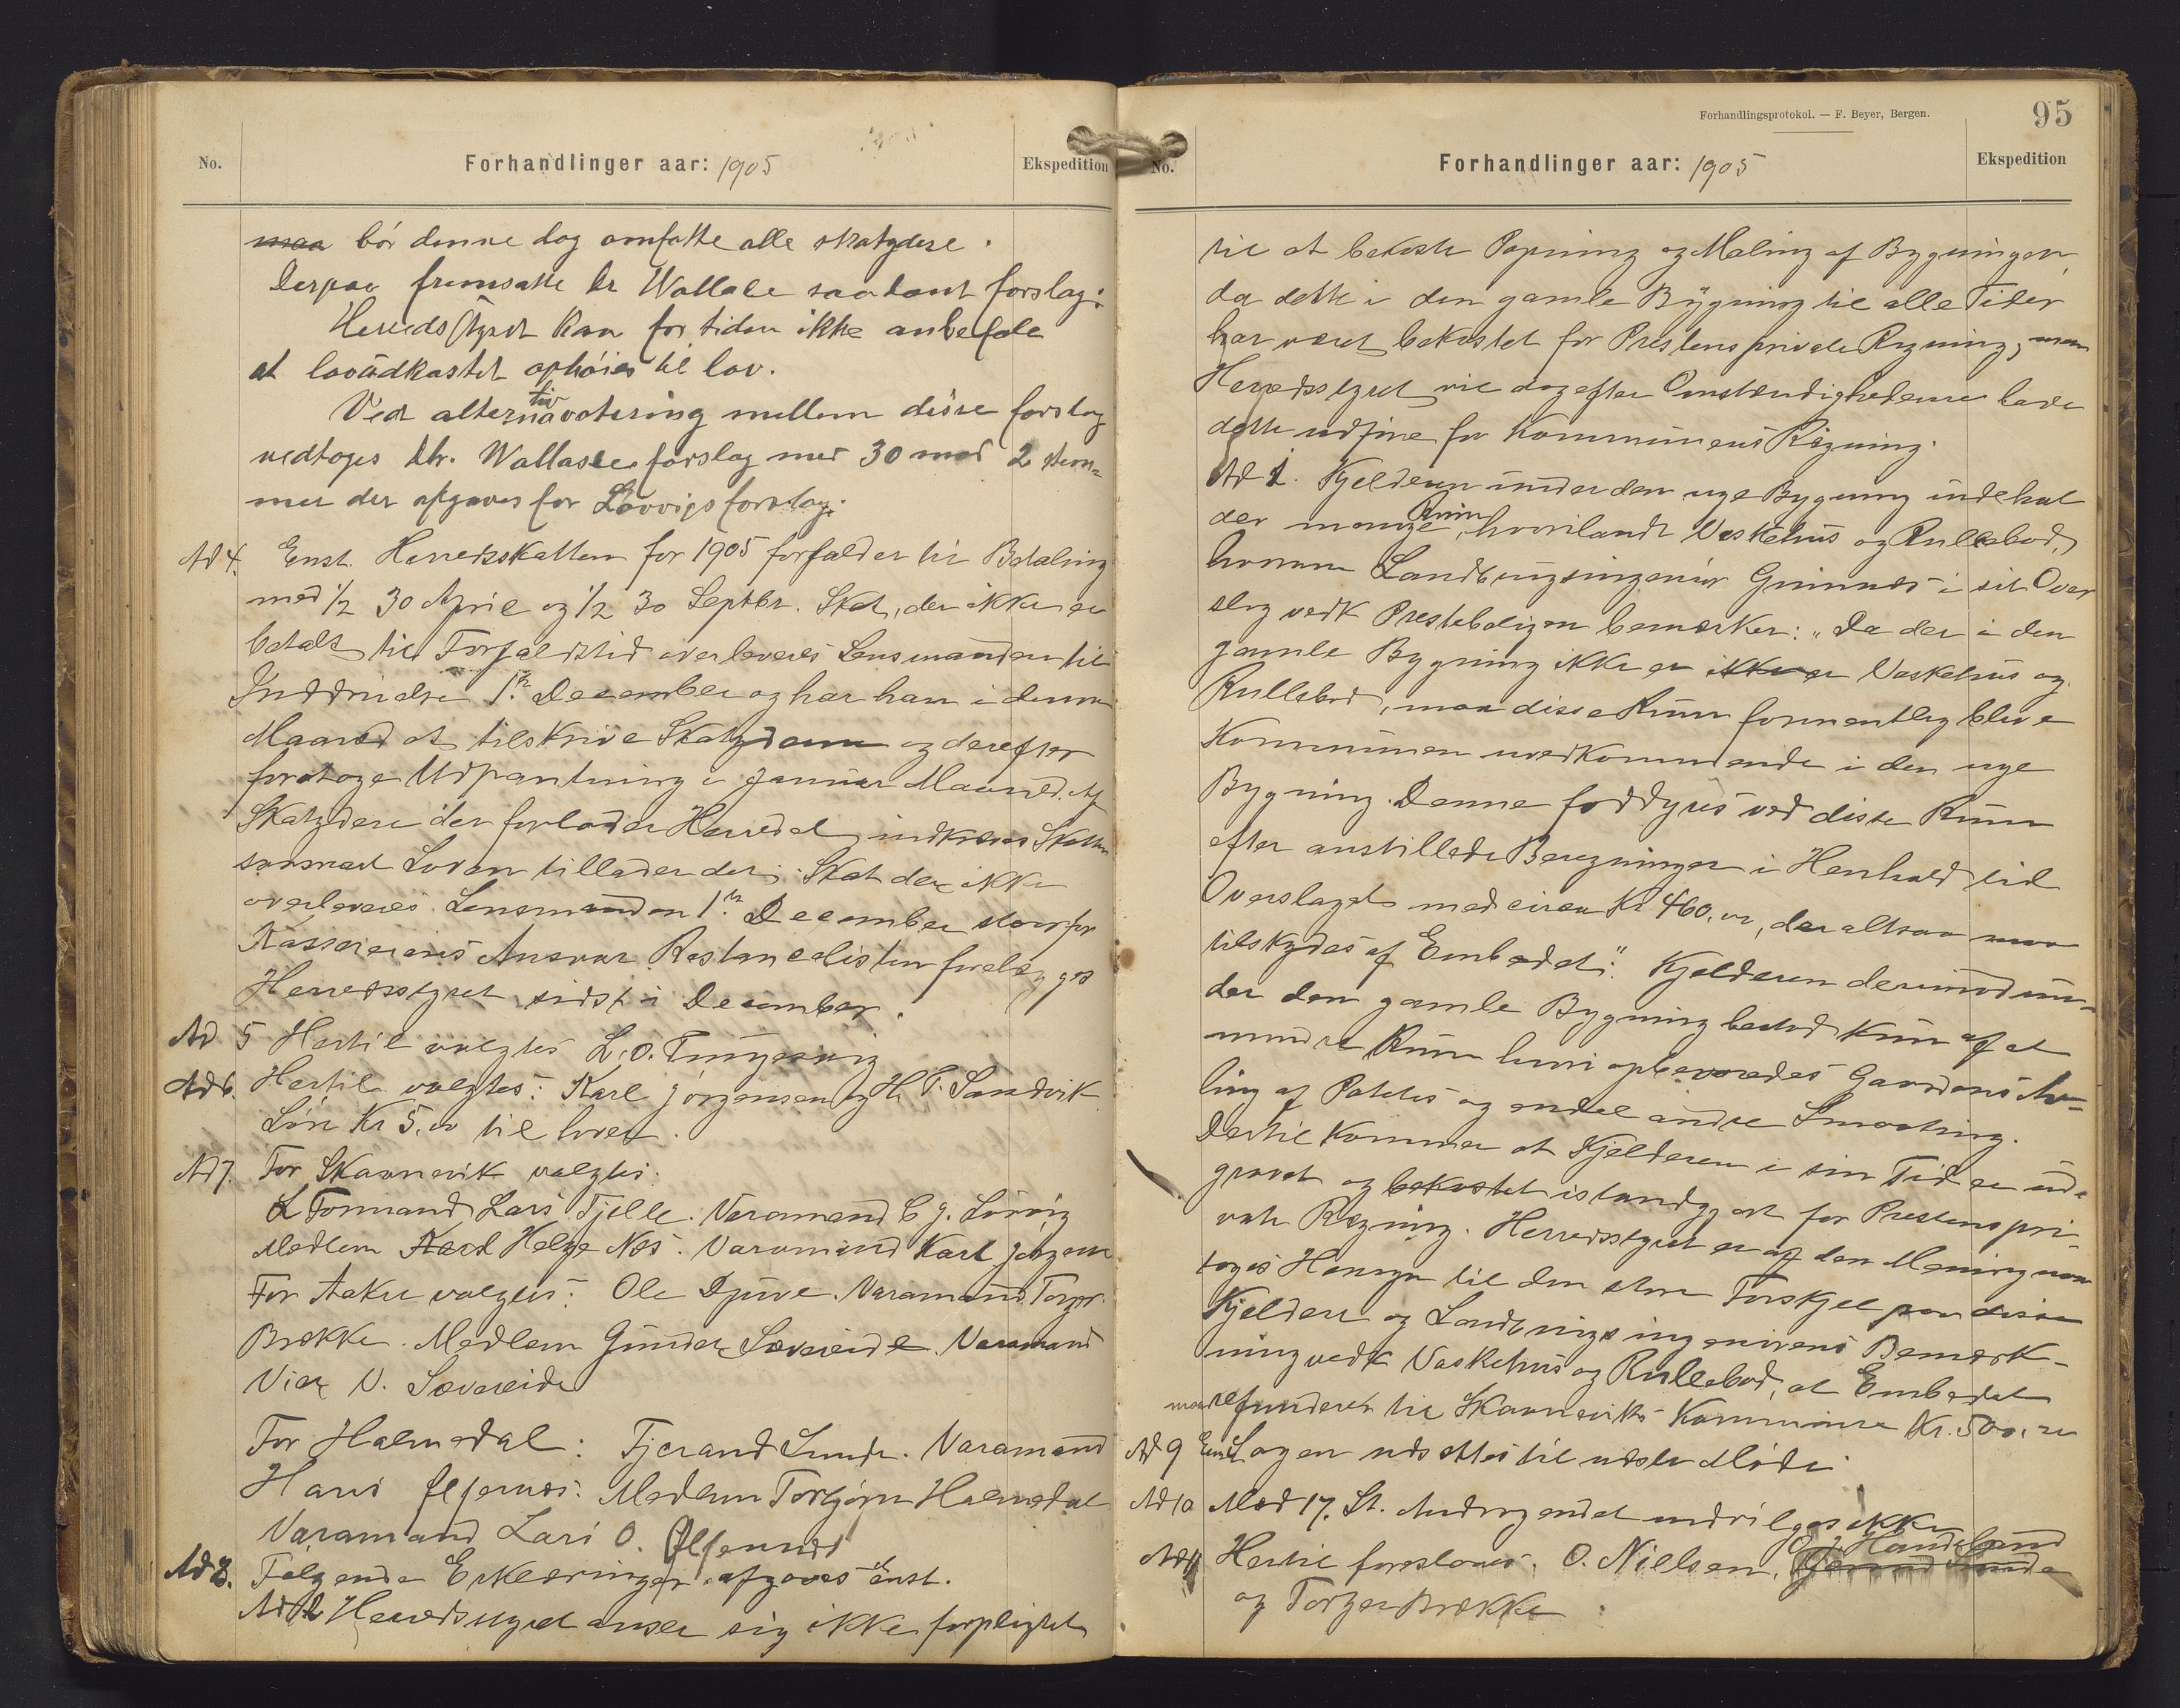 No.
Forhandlinger aar: 1905
Ekspedition
maa bør denne dog omfatte alle skatydere.
Derpaa fremsatte Dr Wallace saadant forslag:
Herredsstyret kan for tiden ikke anbefale
at lovudkastet ophøies til lov.
Ved alternativ votering mellem disse forslag
vedtoges Dr. Wallaces forslag med 30 mod 2 stem=
mer der afgaves for Løvvigs forslag.
Ad 4. Enst. Herredsskatten for 1905 forfalder til Betaling
med 1/2 30 April og 1/2 30 Septbr. Skat, der ikke er
betalt til Forfaldstid overleveres Lensmanden til
Inddrivelse 1ste December og har han i denne
Maaned at tilskrive Skatyderne og derefter
foretage Udpantning i Januar Maaned. Af
Skatydere der forlader Herredet indkræves Skatten
saasnart Loven tillader det. Skat der ikke
overleveres Lensmanden 1ste December staar for
Kassererens Ansvar. Restancelisten forelægges
Herredsstyret sidst i December.
Ad 5 Hertil valgtes L. O. Tungesvig
Ad 6. Hertil valgtes: Karl Jørgensen og H. T. Sandvik
Løn Kr 5.00 til hver.
Ad 7. For Skaanevik valgtes:
Formand Lars Fjelle. Varamand C J. Løvvig
Medlem Karl Helge Næs. Varamand Karl Jørgensen
For Aakre valgtes: Ole Djuve. Varamand Torger
Brekke. Medlem Gunder Sævereide. Varamand
Vier V. Sævereide
For Holmedal: Tjerand Lunde. Varamand
Hans Ølfernes. Medlem Torbjørn Holmedal
Varamand Lars O. Ølfernes
Ad 8. Følgende Erklæringer afgaves enst.
Ad 2 Herredsstyret anser sig ikke forpligtet
Forhandlingsprotokol. — F. Beyer, Bergen.
95
No.
Forhandlinger aar: 1905
Ekspedition
til at bekoste Papning og Maling af Bygningen,
da dette i den gamle Bygning til alle Tider
har været bekostet for Prestens private Regning, men
Herredsstyret vil dog efter Omstændighederne lade
dette udføre for Kommunens Regning.
Ad 1. Kjelderen under den nye Bygning indehol
der mange Rum, hvoriblandt Vaskehus og Rullebod,
hvorom Landbrugsingeniør Grimnes i sit Over
slag vedk Presteboligen bemærker: "Da der i den
gamle Bygning ikke er ikke er Vaskehus og
Rullebod, maa disse Rum formentlig blive
Kommunen uvedkommende i den nye
Bygning. Denne fordyres ved disse Rum
efter anstillede Beregninger i Henhold til
Overslaget med circa Kr 460.00, der altsaa maa
tilskydes af Embedet". Kjelderen derimod un-
der den gamle Bygning bestod kun af et
mindre Rum hvori opbevaredes Gaardens Av=
ling af Potetes og endel andre Smaating.
Dertil kommer at Kjelderen i sin Tid er ud-
gravet og bekostet istandgjort for Prestens pri
vate Regning. Herredsstyret er af den Mening naar
tages Hensyn til den store Forskjel paa disse
Kjeldere og Landbrugsingeniørens Bemærk-
ning vedk Vaskehus og Rullebod, at Embedet
maa refundere til Skaaneviks Kommune Kr. 500.00
Ad 9 Enst. Sagen udsættes til næste Møde
Ad 10 Mod 17. St. Andragendet indvilges ikke
Ad 11 Hertil foreslaaes: O. Nielsen, Tjerand Lunde O. J. Handeland
og Torger Brekke